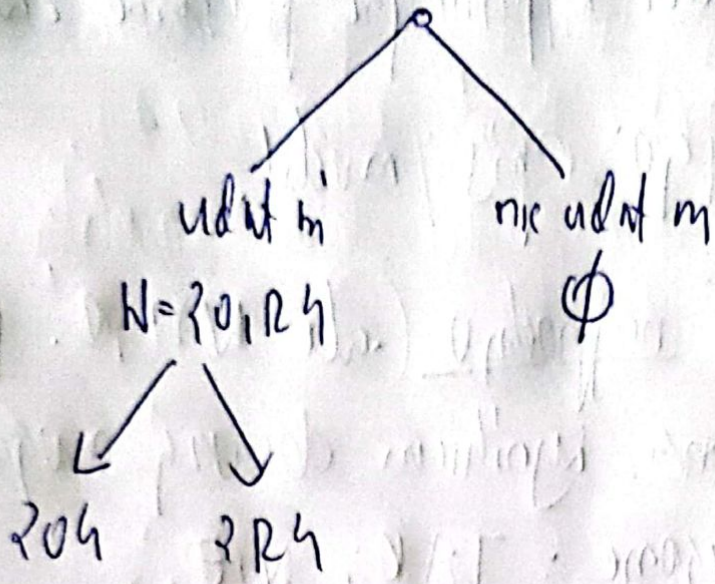 udał m nie udał m
N={O,R} ∅
{O} {R}